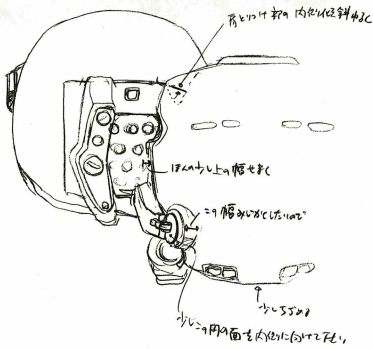 肩とりつけ部の内側化を斜めに
ほんの少し上の幅せまく
この幅みじかくしたいので
少しちぢめる
少しこの円の面を内側に向けて下さい